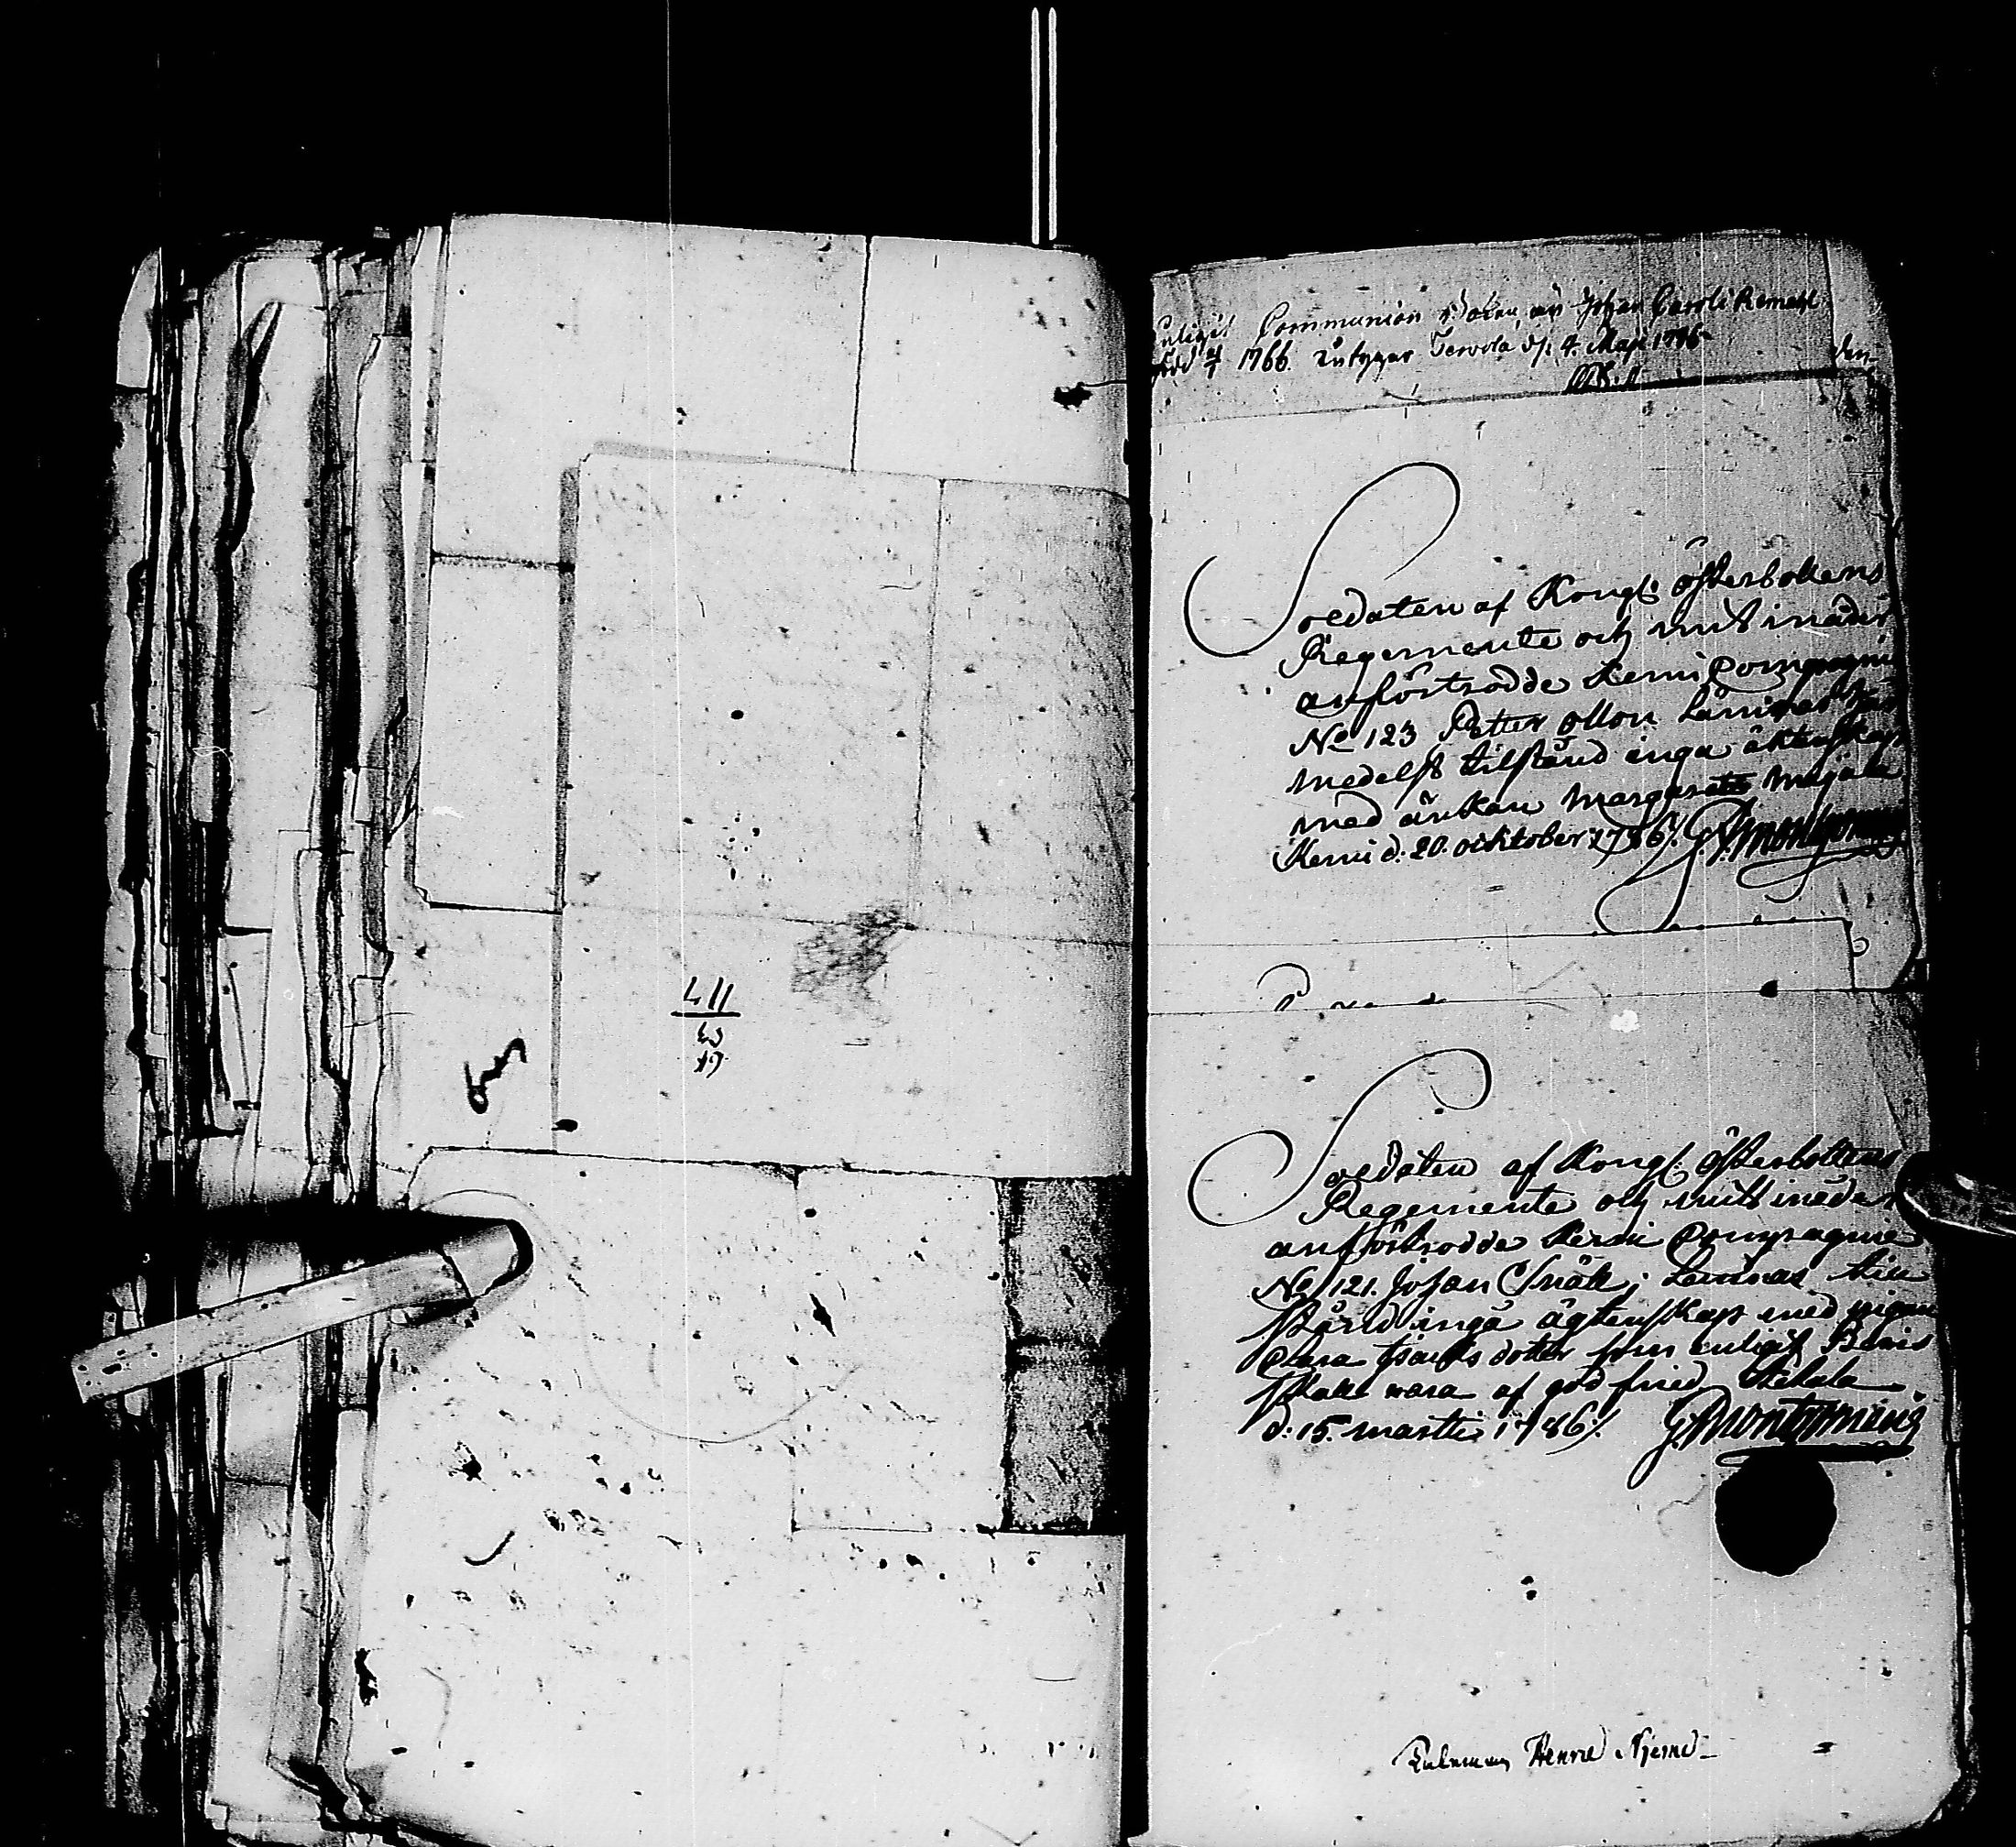 Enligit Communion Boken, är Johan Caroli Remahl
född 1766. intygar Tervola d. 4. Maji 1786
Soldaten af Kongl. Österbottens
Regemente och mitt i nåder
anförtrodde Kemi Compagnie
No 123 Petter Ollon Lämnas här
medelst tilstånd ingå äktenskap
med änkan Margareta Maijala
Kemi d. 20. october 1786 /. G. Montgomery
Soldaten af Kongl. Österbottens
Regemente och mitt i nåder
anförtrodde Kemi Compagnie
No 121. Johan Snäll; Lemnas till
stånd ingå ägtenskap med pigan
Clara Isaacs dotter som enligt Bevis
skall vara af god fried. Akala
d. 15. martii 1786 /. G. Montgomery
117
Henric